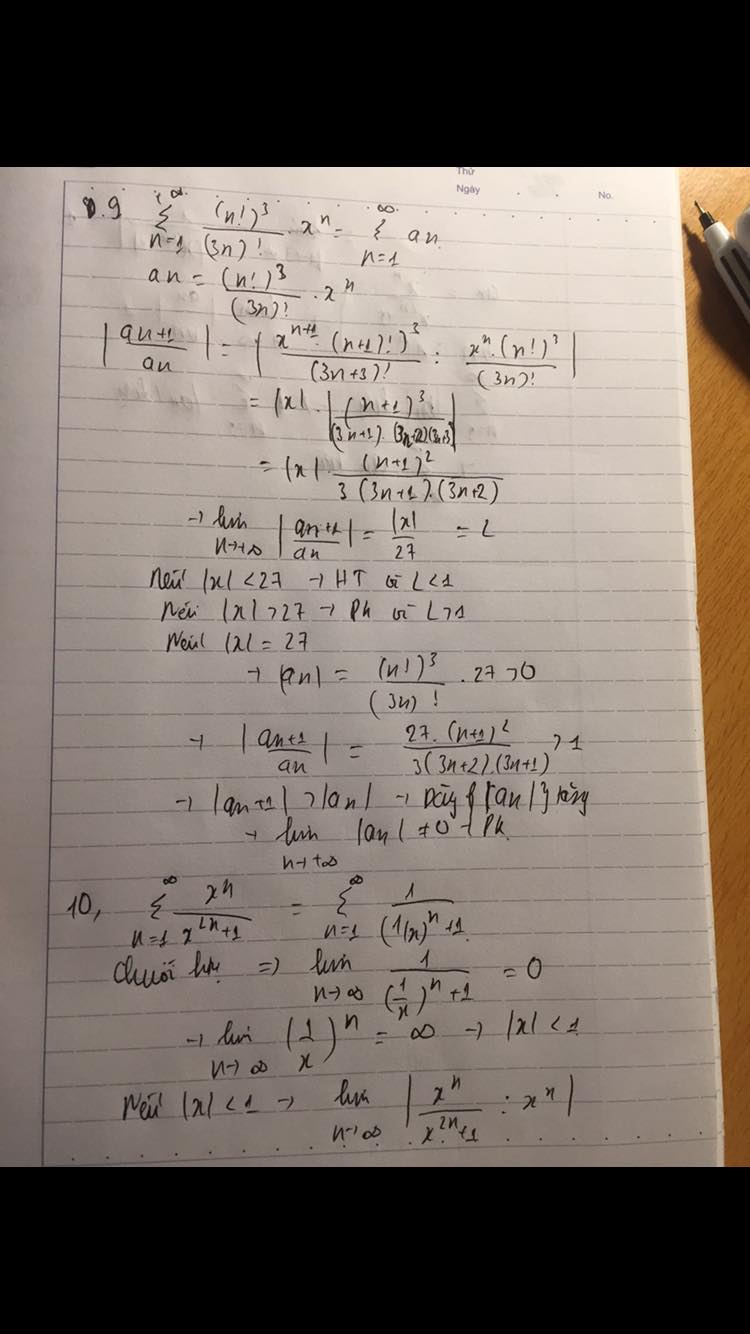 Thứ
Ngày No.
9 ∑_{n=1}^{∞} (n!)³/(3n)! · xⁿ = ∑_{n=1}^{∞} an
an = (n!)³/(3n)! · xⁿ
|an+1/an| = |xⁿ⁺¹ · (n+1)!)³/(3n+3)! : xⁿ · (n!)³/(3n)!|
= |x| · |(n+1)³/(3n+1).(3n+2)(3n+3)|
= |x| · (n+1)²/3(3n+1).(3n+2)
→ lim_{n→+∞} |an+1/an| = |x|/27 = L
Nếu |x| < 27 → HT vì L < 1
Nếu |x| > 27 → PK vì L > 1
Nếu |x| = 27
→ |an| = (n!)³/(3n)! . 27 > 0
→ |an+1/an| = 27.(n+1)²/3(3n+2).(3n+1) > 1
→ |an+1| > |an| → Dãy {|an|} tăng
→ lim_{n→+∞} |an| ≠ 0 → PK
10, ∑_{n=1}^{∞} xⁿ/x²ⁿ+1 = ∑_{n=1}^{∞} 1/(1/x)ⁿ+1
Chuỗi htụ => lim_{n→∞} 1/(1/x)ⁿ+1 = 0
→ lim_{n→∞} (1/x)ⁿ = ∞ → |x| < 1
Nếu |x| < 1 → lim_{n→∞} |xⁿ/x²ⁿ+1 : xⁿ|